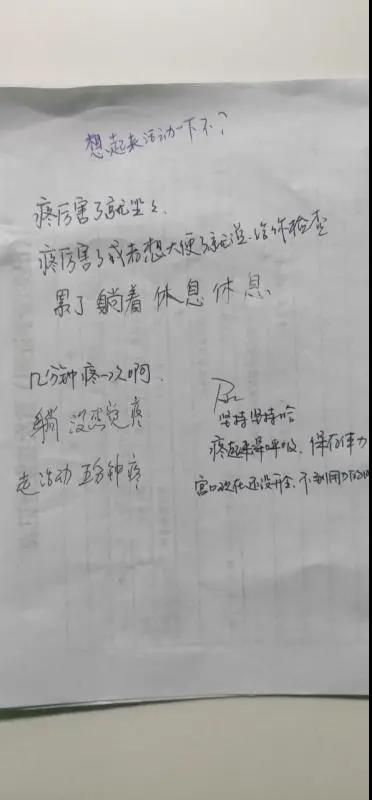 想起来活动一下不？
疼厉害了就坐坐、
疼厉害了或者想大便了就说、给你检查
累了躺着休息休息、
几分钟疼一次啊、
躺 没感觉疼
走活动 五分钟疼
坚持坚持哈
疼起来深呼吸、保存体力
宫口现在还没开全、不到用力的时